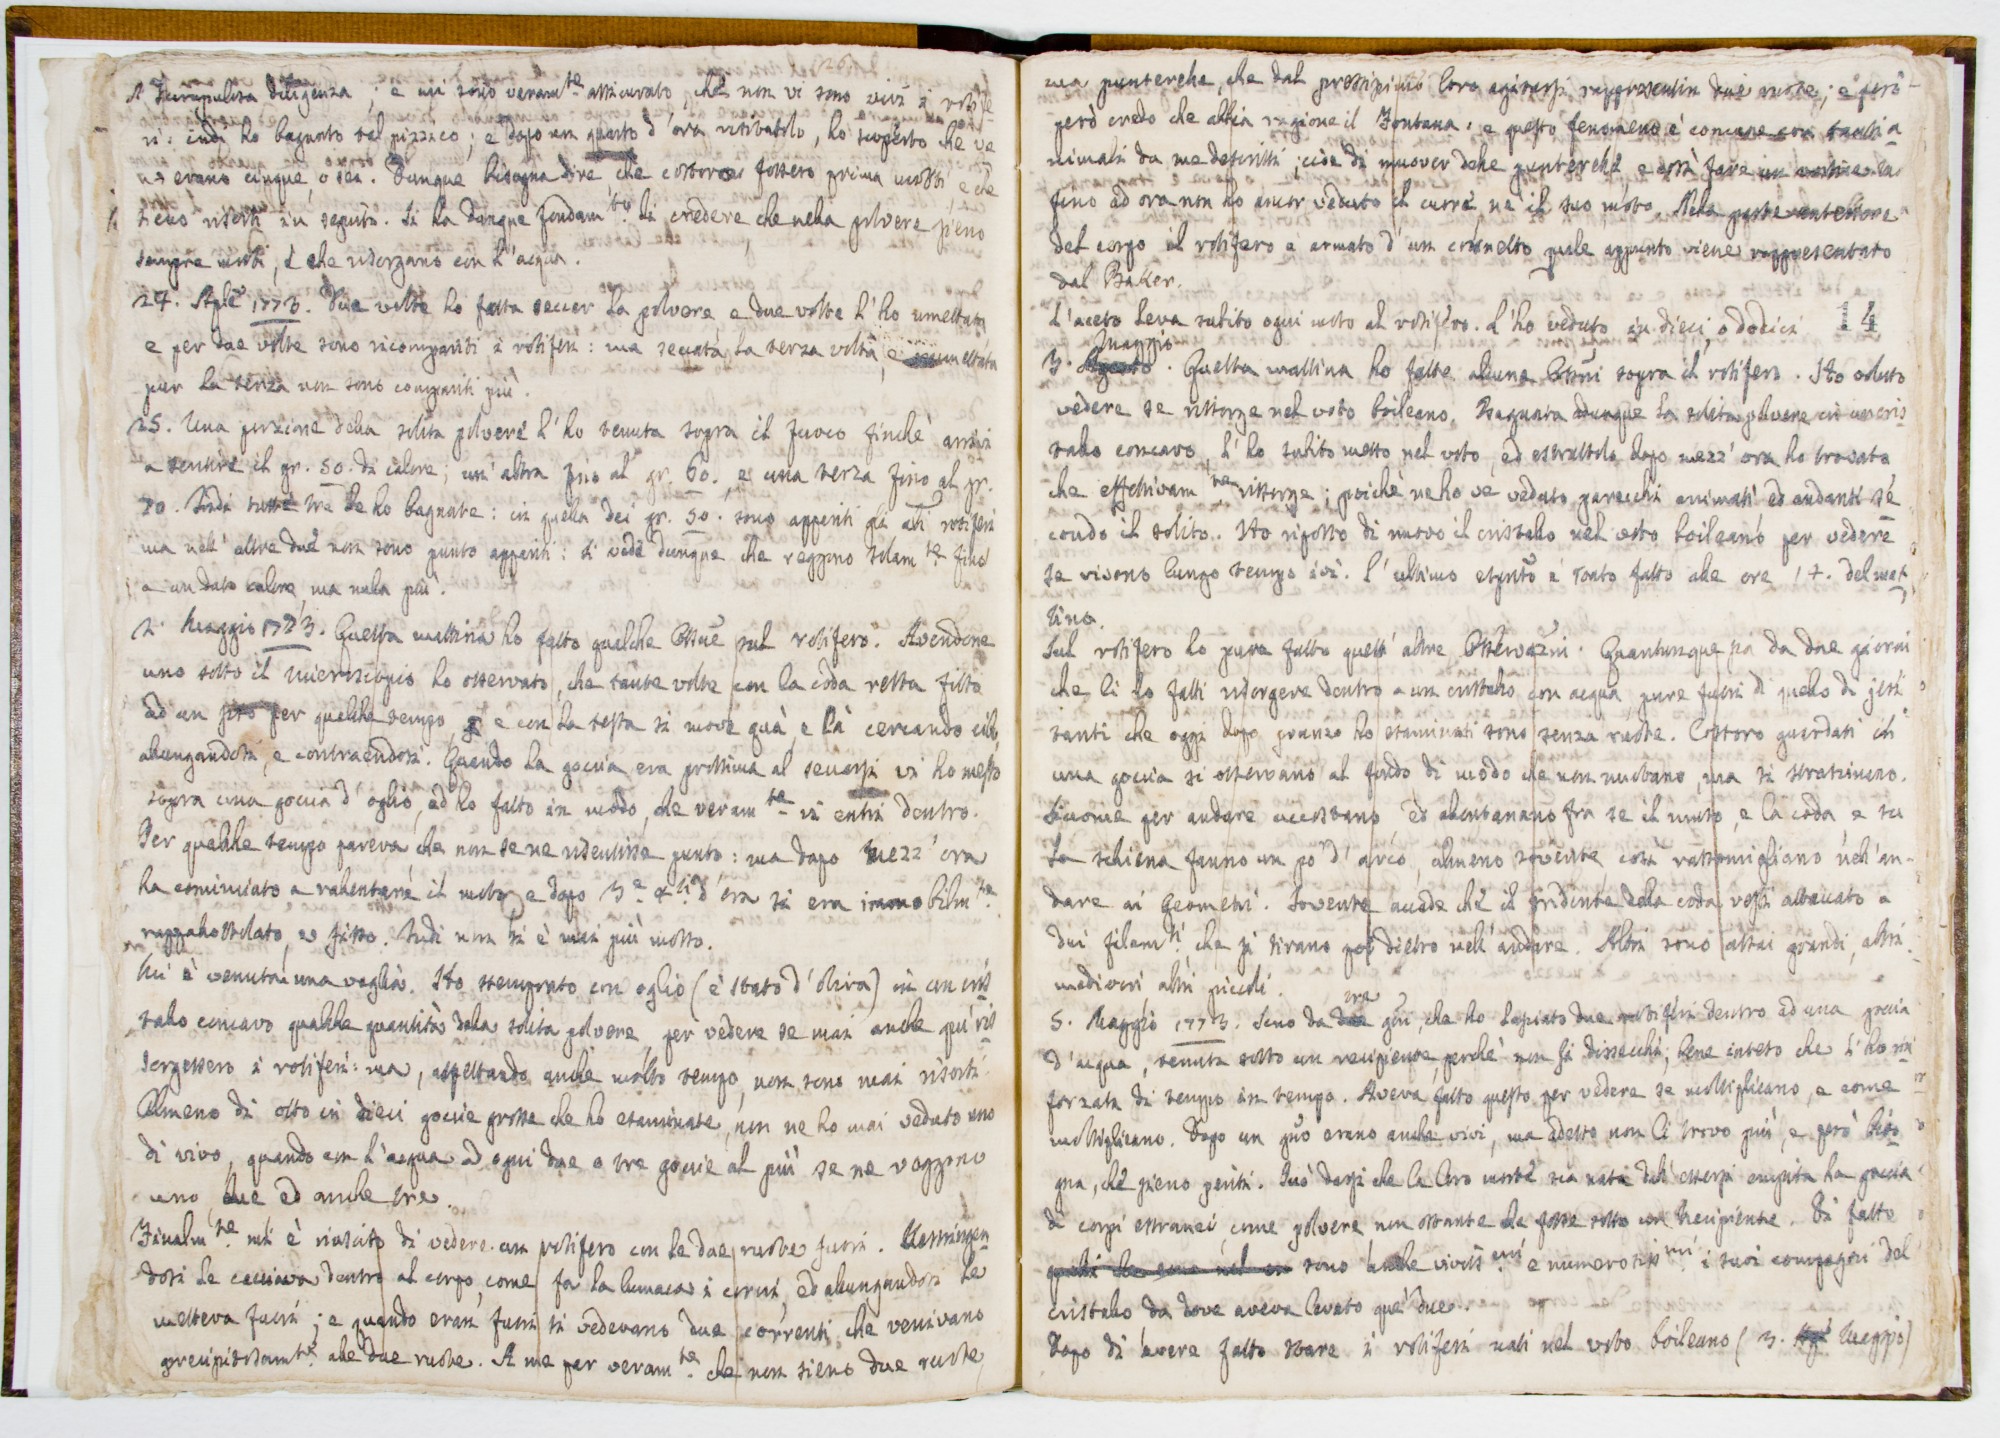 scrupulosa diligenza; e mi sono veram.te assicurato, che non vi sono vivi i rotife
ri: indi ho bagnato tal pizzico; e dopo un quarto d'ora visitatolo, ho scoperto che ve
n'erano cinque, o sei. Dunque bisogna dire che costoro fossero prima morti, e che
sieno risorti in seguito. Si ha dunque fondam.to di credere, che nella polvere sieno
sempre morti, e che risorgano con l'acqua.
27. Aple 1773. Due volte ho fatta seccer la polvere, e due volte l'ho umettata
e per due volte sono ricompariti i rotiferi: ma seccata la terza volta, e umettata
pur la terza non sono compariti più.
25. Una porzione della solita polvere l'ho tenuta sopra il fuoco finchè arrivi
a sentire il gr. 50. di calore; un'altra fino al gr. 60., e una terza fino al gr.
70. Indi tutte tre le ho bagnate: in quella dei gr. 50. sono apperiti gli alti rotiferi
ma nell'altre due non sono punto apperiti: Si vede dunque che reggono solam.te fino
a un dato calore, ma nulla più.
2. Maggio 1773. Questa mattina ho fatto qualche Ossne sul rotifero. Avendone
uno sotto il Microscopio ho osservato, che tante volte con la coda resta fitto
ad un sito per qualche tempo, e con la testa si move quà, e là cercando cibo,
allungandosi, e contraendosi. Quando la goccia era prossima al seccarsi vi ho messo
sopra una goccia d'oglio, ed ho fatto in modo, che veram.te vi entri dentro.
Per qualche tempo pareva che non se ne risentisse punto: ma dopo mezz'ora
ha cominciato a rallentare il moto, e dopo 3.e 4.ti d'ora si era immobilm.te
rappallottolato, e fisso. Indi non si è mai più mosso.
Mi è venuta una voglia. Ho stemprato con oglio (è stato d'oliva) in un cris
tallo concavo qualche quantità della solita polvere, per vedere se mai anche quì ris
sorgessero i rotiferi: ma, aspettando anche molto tempo, non sono mai risorti.
Almeno di otto in dieci goccie grosse che ho esaminate, non ne ho mai veduto uno
di vivo, quando con l'acqua ad ogni due o tre goccie al più se ne veggono
uno, due ed anche tre.
Finalm.te mi è riuscito di vedere un rotifero con le due ruote fuori. Restringen
dosi le cacciava dentro al corpo, come fa la lumaca i corni, ed allungandosi le
metteva fuori; e quando eran fuori si vedevano due correnti, che venivano
precipitosam.te alle due ruote. A me par veram.te che non sieno due ruote,
ma punterelle, che dal prossimo loro agitarsi rappresentin due ruote; e però
però credo che abbia ragione il Fontana: e questo fenomeno è comune con tanti a
nimali da me descritti; cioè di muover delle punterelle, e così fare un vortice. Ma
fino ad ora non ho ancor veduto il cuore, nè il suo moto. Nella parte anteriore
del corpo il rotifero è armato d'un cornetto quale appunto viene rappresentato
dal Baker.
L'aceto leva subito ogni moto al rotifero. L'ho veduto in dieci, o dodici
14
Maggio
3. Agosto. Questa mattina ho fatte alcune Ossni sopra il rotifero. Ho voluto
vedere se rissorge nel voto boileano. Bagnata adunque la solita polvere in un cris
tallo concavo, l'ho subito messo nel voto, ed estrattolo dopo mezz'ora ho trovato
che effettivam.te rissorge; poichè ne ho ve veduto parecchi animati ed andanti se
condo il solito. Ho riposto di nuovo il cristallo nel voto boileano per vedere
se vivono lungo tempo ivi. L'ultimo espto è stato fatto alle ore 17. del mat
tino.
Sul rotifero ho pure fatto quest'altre Osservazni. Quantunque sia da due giorni
che li ho fatti risorgere dentro a un cristallo con acqua, pure fuori di quello di jeri
tanti che oggi dopo pranzo ho esaminati sono senza ruote. Costoro guardati in
una goccia si osservano al fondo di modo che non nuotano, ma si strascinano.
Siccome per andare accostano, ed allontanano fra se il muso, e la coda, e su
la schiena fanno un po' d'arco, almeno sovente, così rassomigliano nell'an-
dare ai Geometri. Sovente accade che il tridente della coda resti attaccato a
dei filam.ti, che si tirano poi dietro nell'andare. Altri sono assai grandi, altri
mediocri altri piccoli.
tre
5. Maggio 1773. Sono da due gni, che ho lasciato due rotiferi dentro ad una goccia
d'acqua, tenuta sotto un recipiente, perchè non si dissecchi; bene inteso che l'ho rin
forzata di tempo in tempo. Aveva fatto questo per vedere se moltiplicano, e come
moltiplicano. Dopo un gno erano anche vivi, ma adesso non li trovo più, e però biso
gna, che sieno periti. Può darsi che la loro morte sia nata dall'essersi empita la goccia
di corpi estranei, come polvere, non ostante che fosse sotto un recipiente. Di fatto
sono anche viviss.mi e numerosiss.mi i suoi compagni del
cristallo da dove aveva levato que' due.
Dopo di avere fatto stare i rotiferi nati nel voto boileano (3. Maggio)